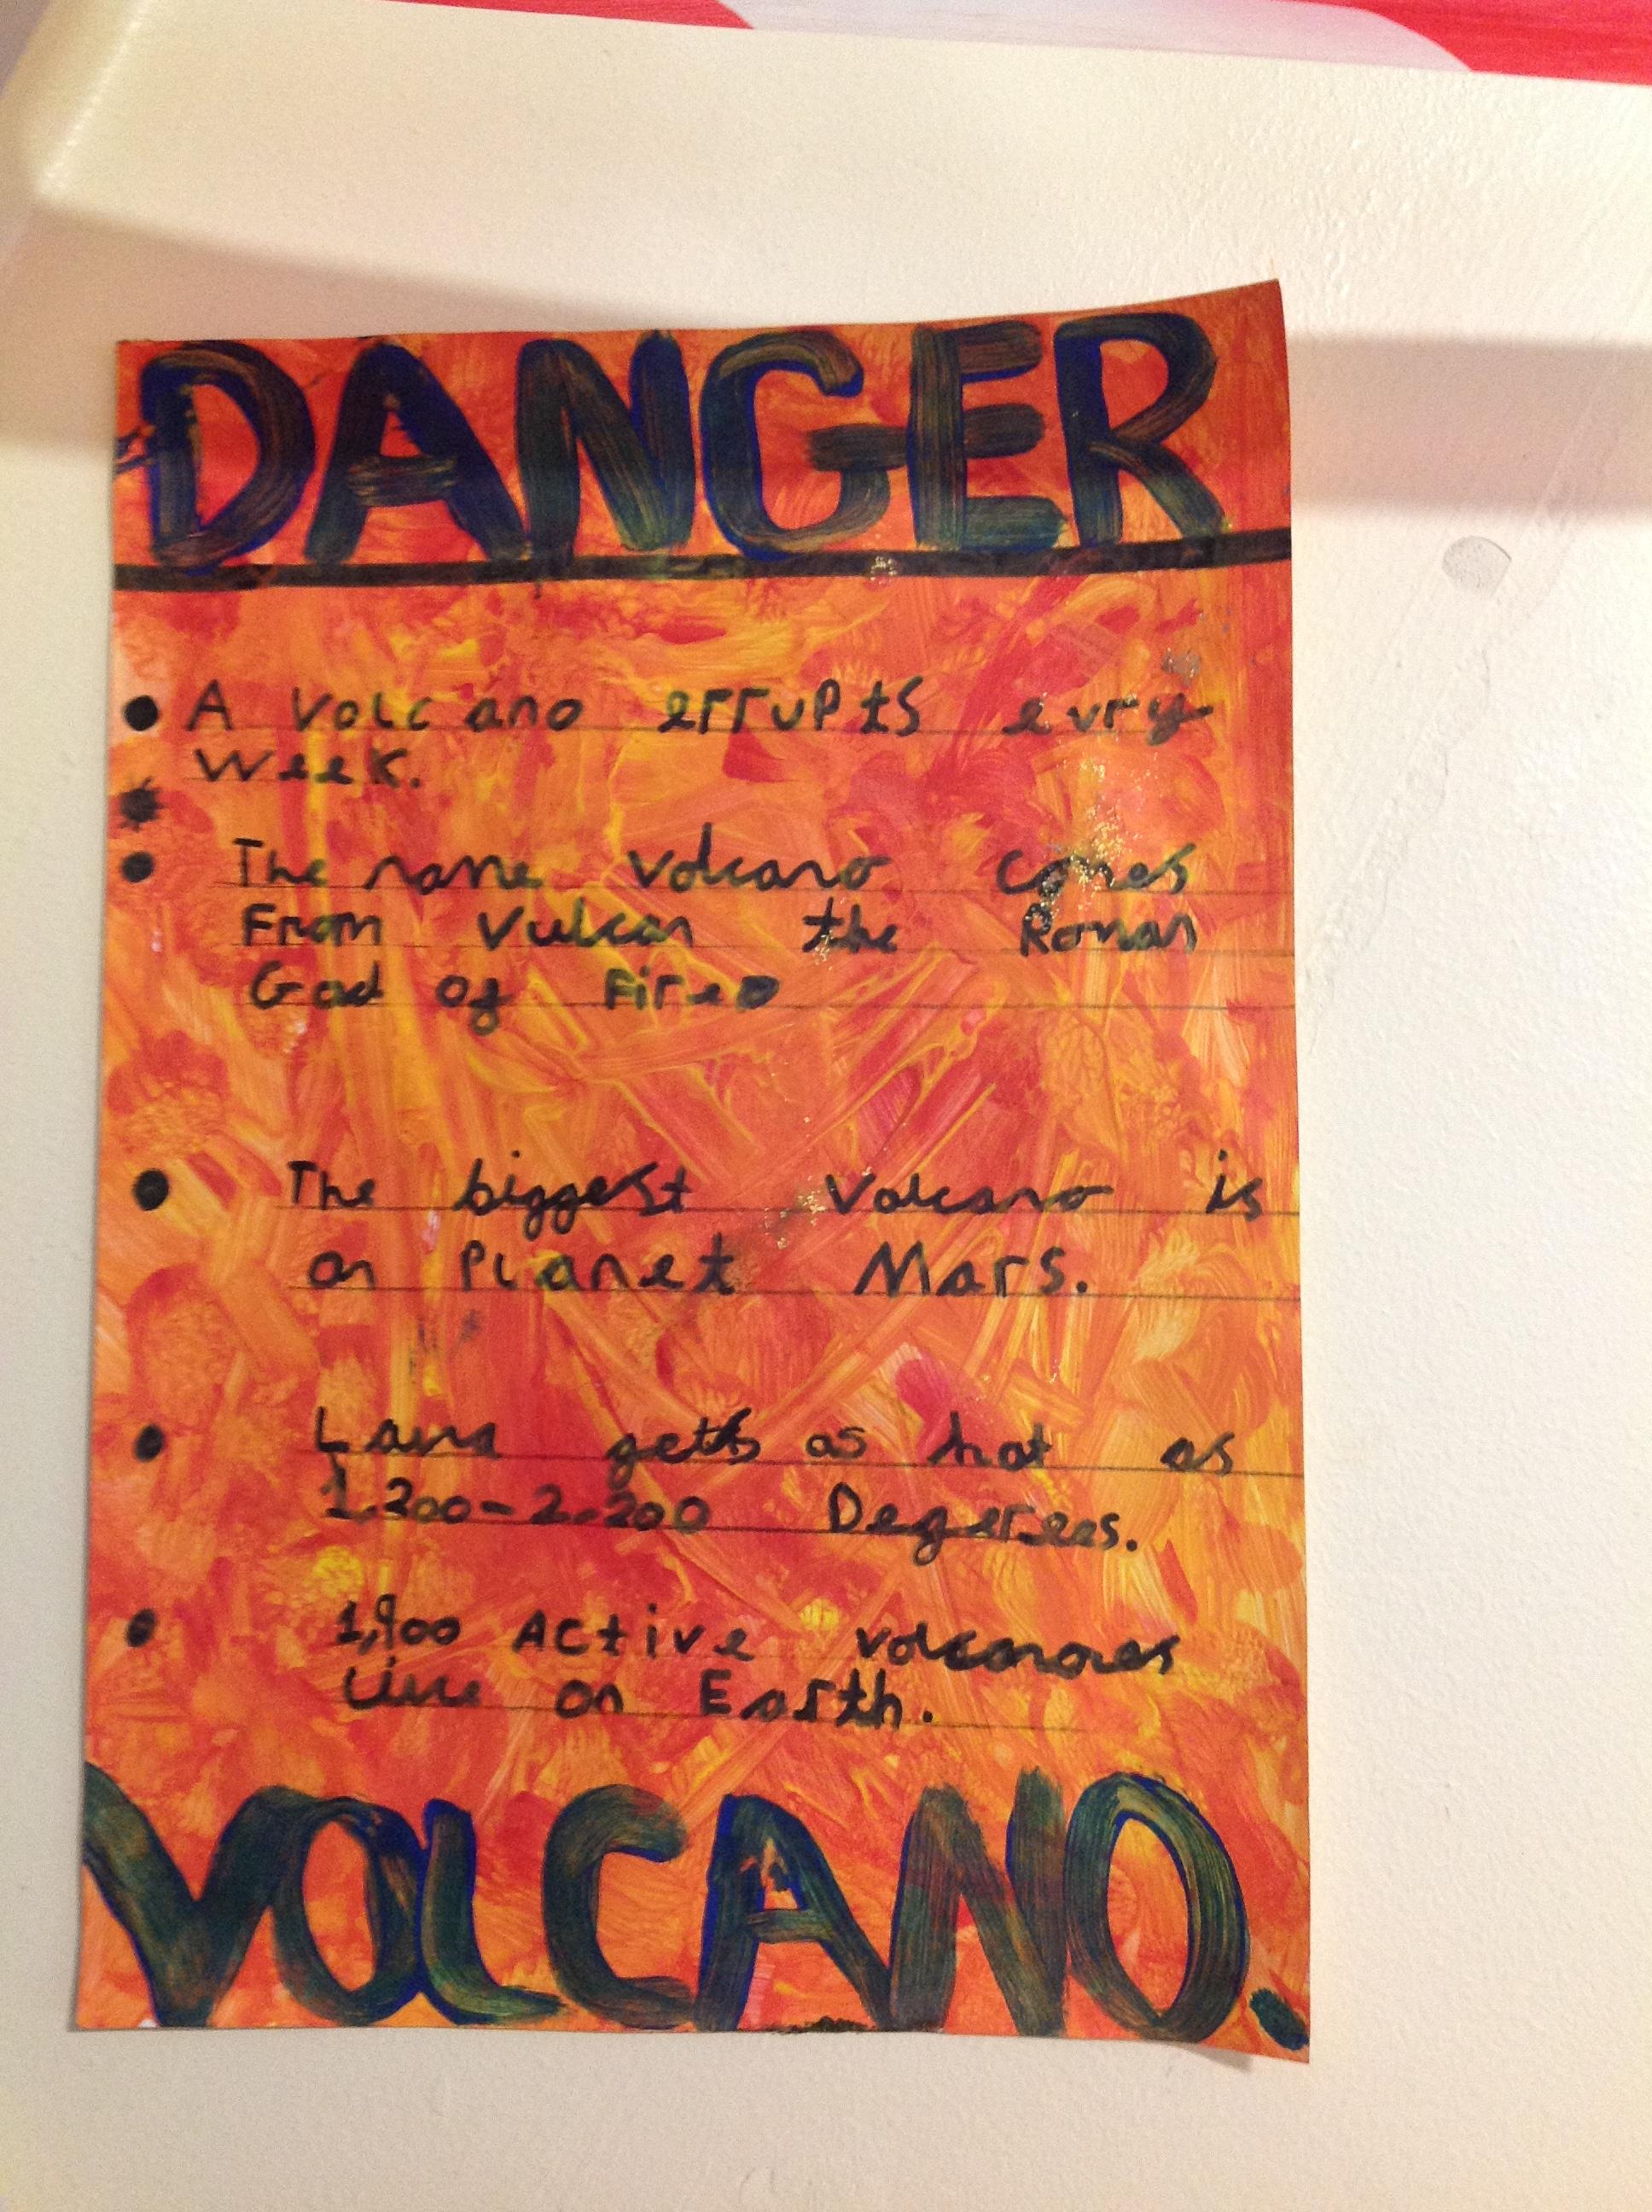 DANGER
• A volcano errupts evry
week.
• The name volcano comes
From Vulcan the Roman
God of Fire.
• The biggest volcano is
on Planet Mars.
• Lava gets as hot as
1.200-2.200 Degerees.
• 1,900 Active volcanoes
live on Earth.
VOLCANO.